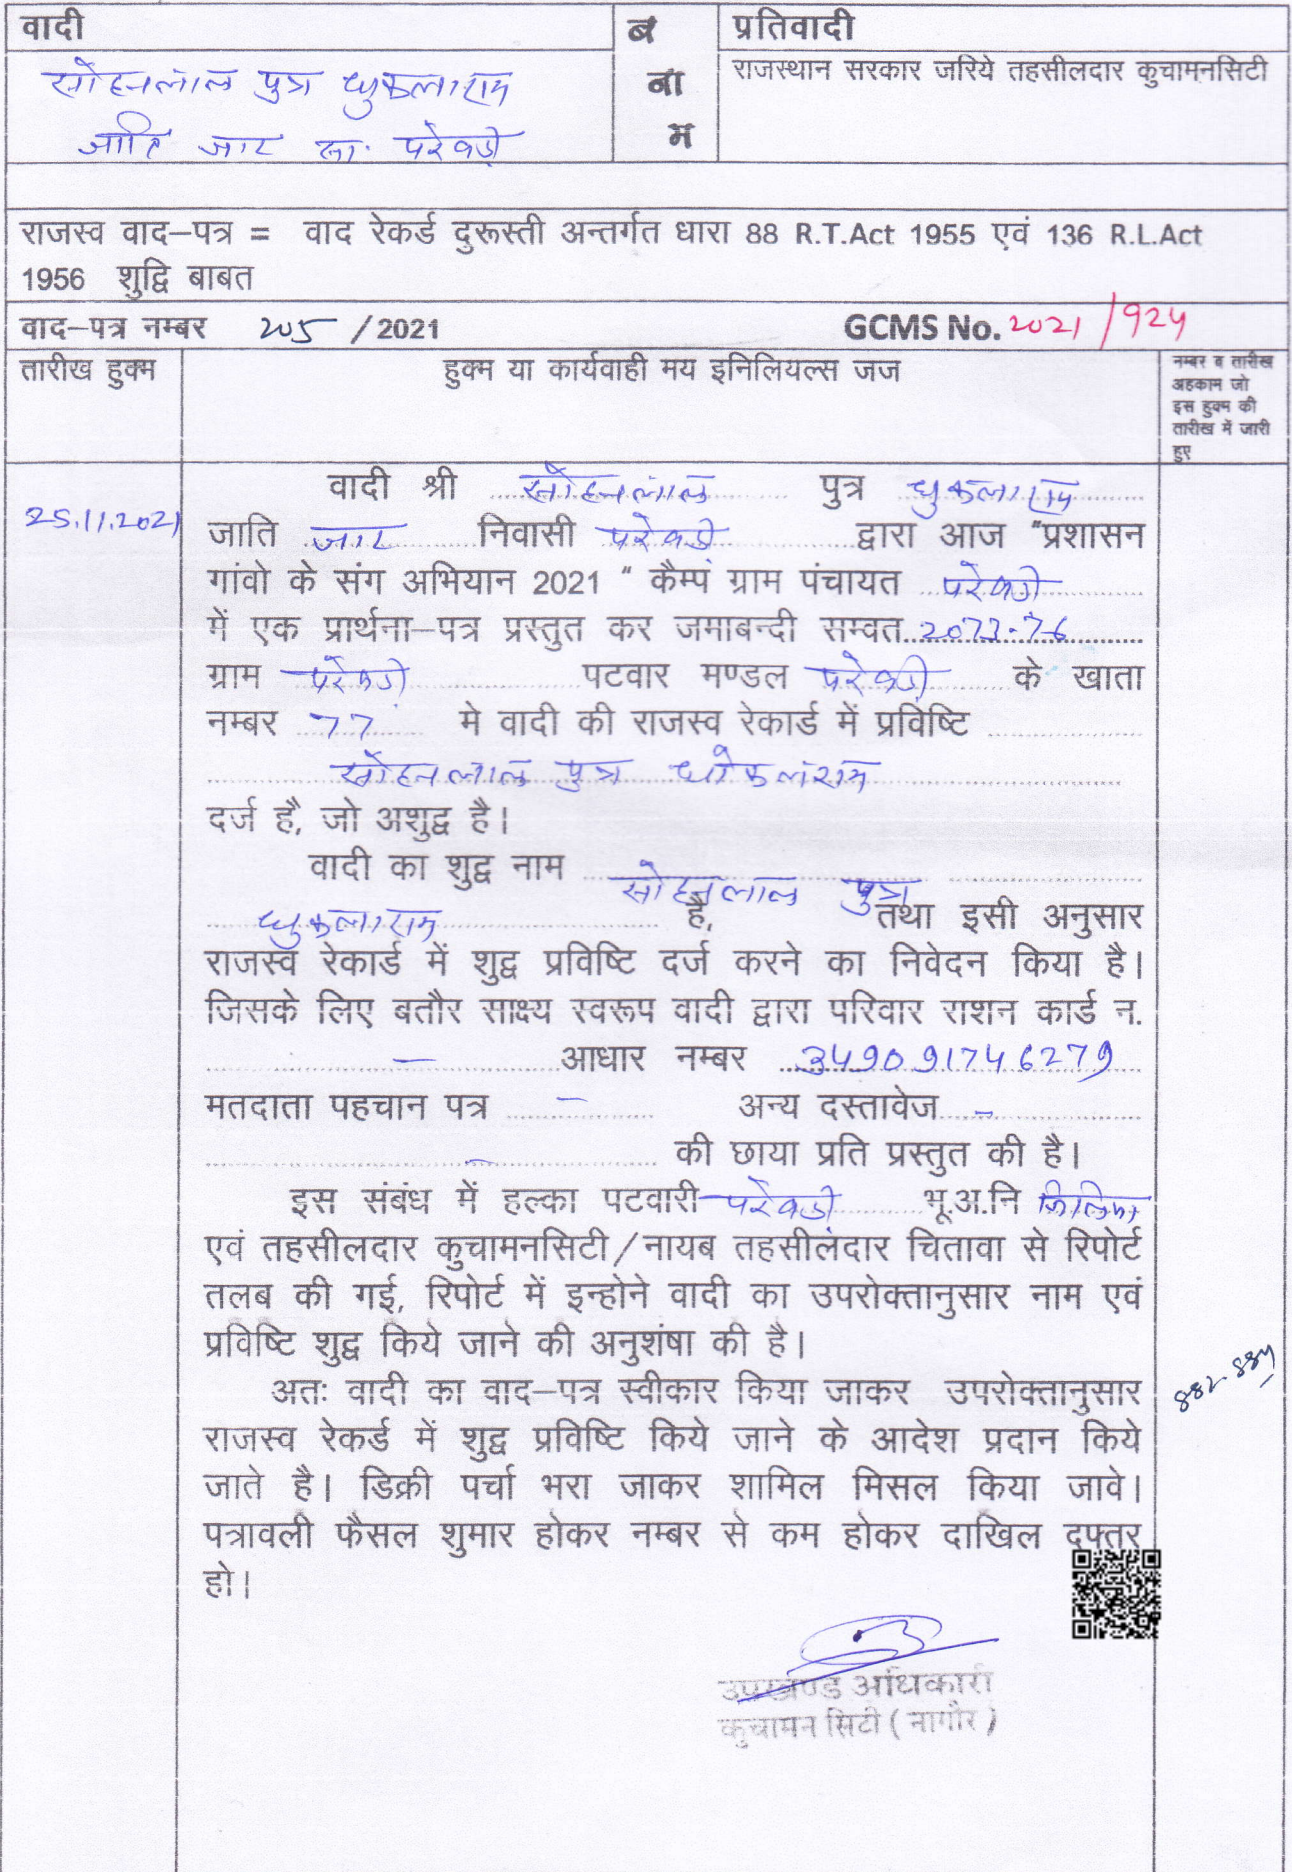 वादी
ब
ना
म
प्रतिवादी
सोहनलाल पुत्र धुकलाराम
जाति जाट सा. परेवडी
राजस्थान सरकार जरिये तहसीलदार कुचामनसिटी
राजस्व वाद–पत्र = वाद रेकर्ड दुरूस्ती अन्तर्गत धारा 88 R.T.Act 1955 एवं 136 R.L.Act
1956 शुद्वि बाबत
वाद–पत्र नम्बर 205 /2021 GCMS No. 2021/924
तारीख हुक्म
हुक्म या कार्यवाही मय इनिलियल्स जज
नम्बर व तारीख
अहकाम जो
इस हुक्म की
तारीख में जारी
हुए
25.11.2021
वादी श्री सोहनलाल पुत्र धुकलाराम
जाति जाट निवासी परेवडी द्वारा आज "प्रशासन
गांवो के संग अभियान 2021 " कैम्प ग्राम पंचायत परेवडी
में एक प्रार्थना–पत्र प्रस्तुत कर जमाबन्दी सम्वत 2073-76
ग्राम परेवडी पटवार मण्डल परेवडी के खाता
नम्बर 77 मे वादी की राजस्व रेकार्ड में प्रविष्टि
सोहनलाल पुत्र धोकलराम
दर्ज है, जो अशुद्व है।
वादी का शुद्व नाम सोहनलाल पुत्र
धुकलाराम है, तथा इसी अनुसार
राजस्व रेकार्ड में शुद्व प्रविष्टि दर्ज करने का निवेदन किया है।
जिसके लिए बतौर साक्ष्य स्वरूप वादी द्वारा परिवार राशन कार्ड न.
– आधार नम्बर 349091746279
मतदाता पहचान पत्र – अन्य दस्तावेज –
– की छाया प्रति प्रस्तुत की है।
इस संबंध में हल्का पटवारी परेवडी भू.अ.नि
एवं तहसीलदार कुचामनसिटी/नायब तहसीलदार चितावा से रिपोर्ट
तलब की गई, रिपोर्ट में इन्होने वादी का उपरोक्तानुसार नाम एवं
प्रविष्टि शुद्व किये जाने की अनुशंषा की है।
अतः वादी का वाद–पत्र स्वीकार किया जाकर उपरोक्तानुसार
राजस्व रेकर्ड में शुद्व प्रविष्टि किये जाने के आदेश प्रदान किये
जाते है। डिक्री पर्चा भरा जाकर शामिल मिसल किया जावे।
पत्रावली फैसल शुमार होकर नम्बर से कम होकर दाखिल दफ्तर
हो।
उपखण्ड अधिकारी
कुचामन सिटी ( नागौर )